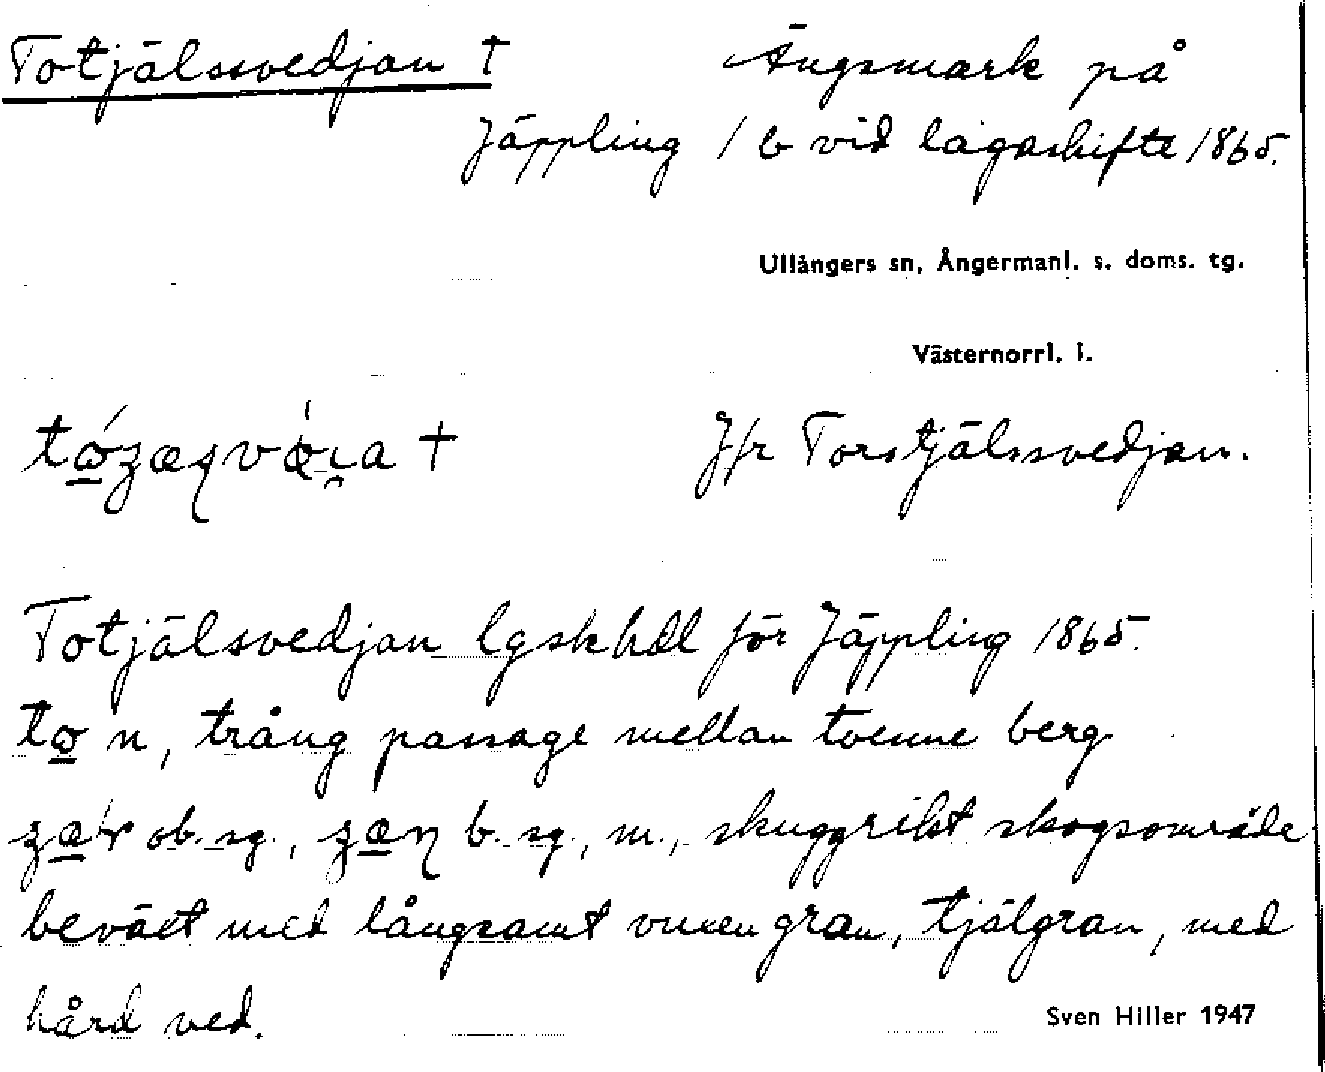 Totjälssvedjan † Ängsmark på
Jäppling 1 b vid lagaskifte 1865.
Ullångers sn, Ångermanl. s. doms. tg.
Västernorrl. l.
† Jfr Torstjälssvedjan.
Totjälsvedjan lgskhdl för Jäppling 1865.
n, trång passage mellan tvenne berg
ob. sg., b. sg., m., skuggrikt skogsområde
beväxt med långsamt vuxen gran, tjälgran, med
hård ved.
Sven Hiller 1947